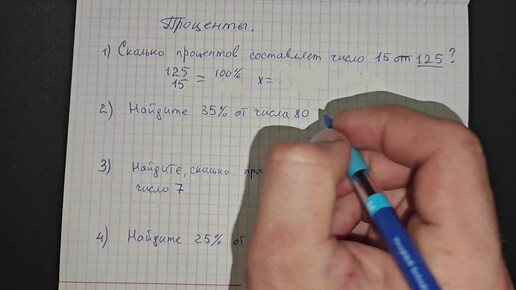 Проценты.
1) Сколько процентов составляет число 15 от 125?
125/15 = 100% x=
2) Найдите 35% от числа 80
3) Найдите, сколько
число 7
4) Найдите 25% от